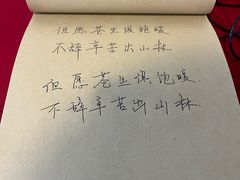 但愿苍生俱饱暖
不辞辛苦出山林
但愿苍生俱饱暖
不辞辛苦出山林